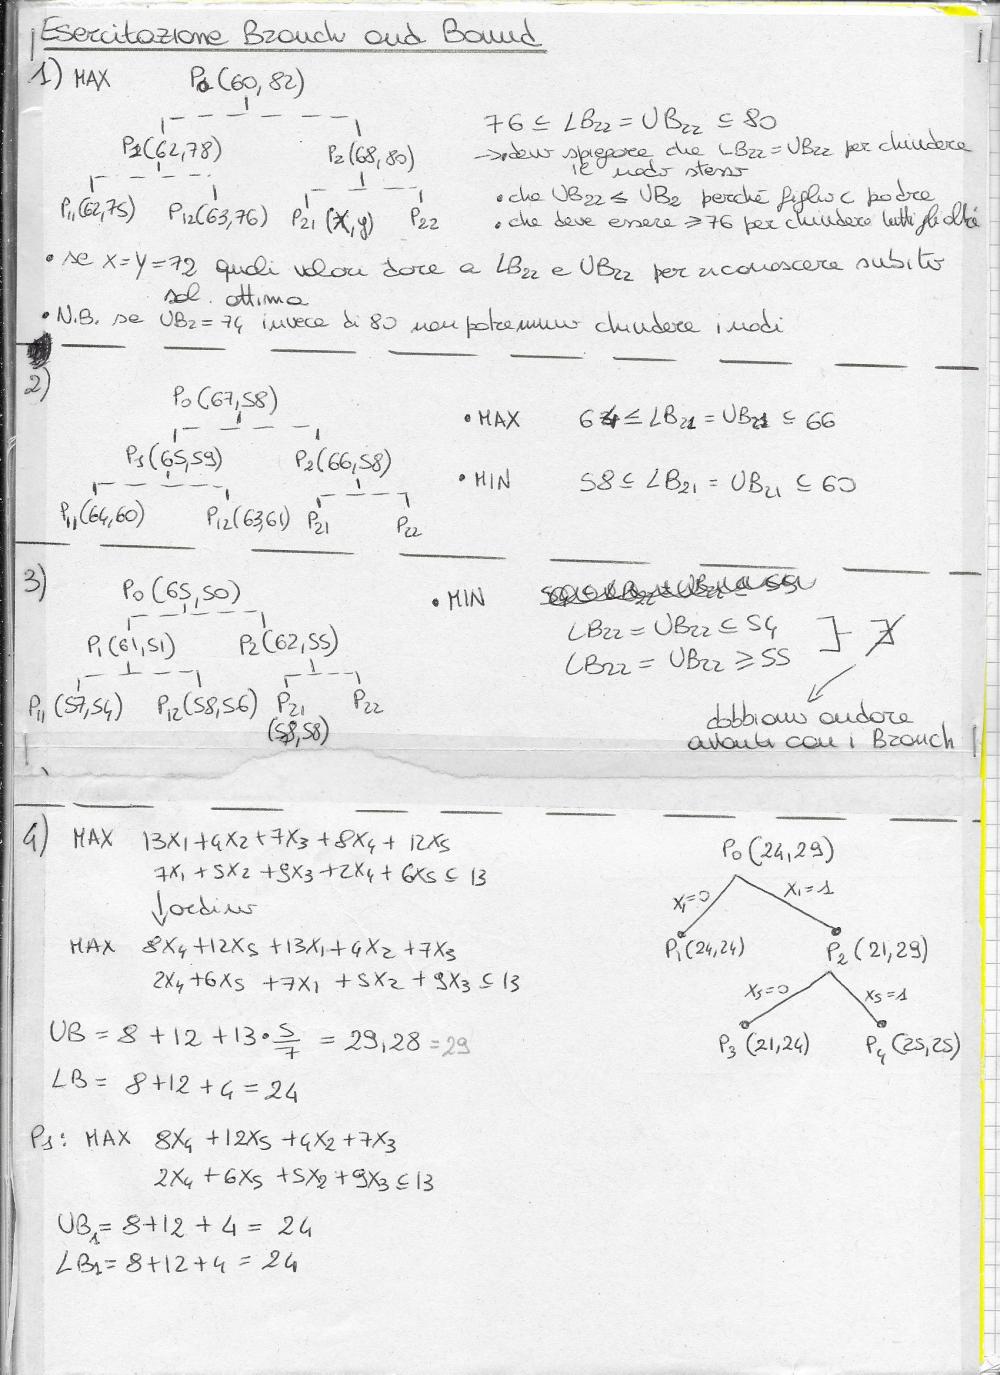 Esercitazione Branch and Bound
1) MAX P0 (60,82)
P1(62,78) P2 (68,80)
P11(62,75) P12(63,76) P21 (x,y) P22
76 ≤ LB22 = UB22 ≤ 80
→ devo spiegare che LB22=UB22 per chiudere
il nodo stesso
• che UB22 ≤ UB2 perché figlio e padre
• che deve essere ≥76 per chiudere tutti gli altri
• se x=y=72 quali valori dare a LB22 e UB22 per riconoscere subito
sol. ottima
• N.B. se UB2=74 invece di 80 non potremmo chiudere i nodi
2)
P0 (67,58)
P1 (65,59) P2 (66,58)
P11 (64,60) P12 (63,61) P21 P22
• MAX 64 ≤ LB21 = UB21 ≤ 66
• MIN 58 ≤ LB21 = UB21 ≤ 60
3)
P0 (65,50)
P1 (61,51) P2 (62,55)
P11 (57,54) P12 (58,56) P21 P22
(58,58)
• MIN
LB22 = UB22 ≤ 54
LB22 = UB22 ≥ 55 } ∄
dobbiamo andare
avanti con i Branch
4) MAX 13x1+4x2+7x3+8x4+12x5
7x1+5x2+9x3+2x4+6x5 ≤ 13
↓ordino
MAX 8x4+12x5+13x1+4x2+7x3
2x4+6x5+7x1+5x2+9x3 ≤ 13
UB = 8+12+13•5/7 = 29,28 = 29
LB = 8+12+4 = 24
P1: MAX 8x4+12x5+4x2+7x3
2x4+6x5+5x2+9x3 ≤ 13
UB1 = 8+12+4 = 24
LB1 = 8+12+4 = 24
P0 (24,29)
x1=0 x1=1
P1 (24,24) P2 (21,29)
x5=0 x5=1
P3 (21,24) P4 (25,25)